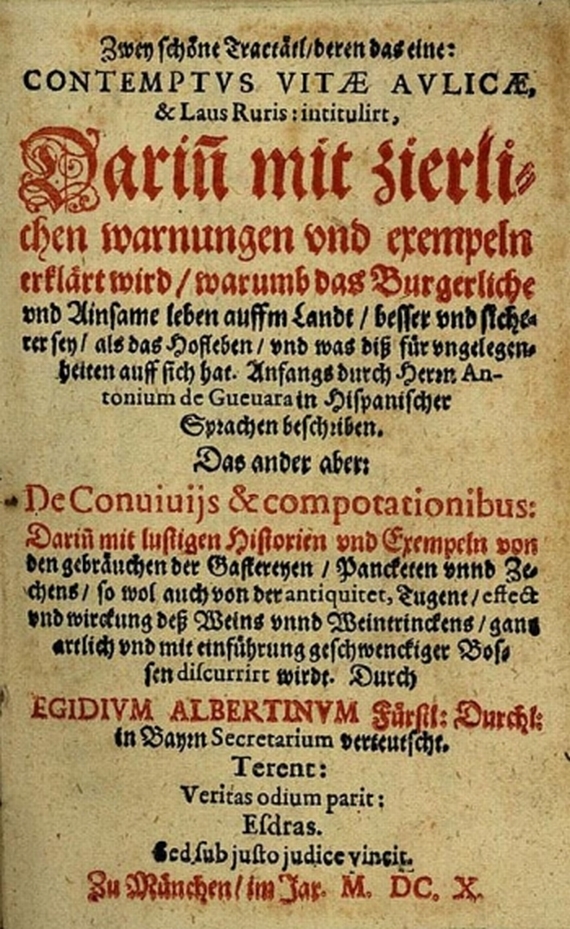 Zwey schöne Tractätl/deren das eine:
CONTEMPTVS VITÆ AVLICÆ,
& Laus Ruris: intitulirt,
Dariñ mit zierli⸗
chen warnungen vnd exempeln
erklärt wird / warumb das Burgerliche
vnd Ainsame leben auffm Landt / besser vnd siche⸗
rer sey / als das Hofleben / vnd was diß für vngelegen⸗
heiten auff sich hat. Anfangs durch Herrn An-
tonium de Gueuara in Hispanischer
Sprachen beschriben.
Das ander aber:
De Conuiuijs & compotationibus:
Dariñ mit lustigen Historien vnd Exempeln von
den gebräuchen der Gastereyen / Pancketen vnnd Ze⸗
chens / so wol auch von der antiquitet, Tugent / effect
vnd wirckung deß Weins vnnd Weintrinckens / gantz
artlich vnd mit einführung geschwenckiger Bos⸗
sen discurrirt wirdt. Durch
EGIDIVM ALBERTINVM Fürstl: Durchl:
in Bayrn Secretarium verteutscht.
Terent:
Veritas odium parit:
Esdras.
Sed sub justo judice vincit.
Zu München / im Jar. M. DC. X.